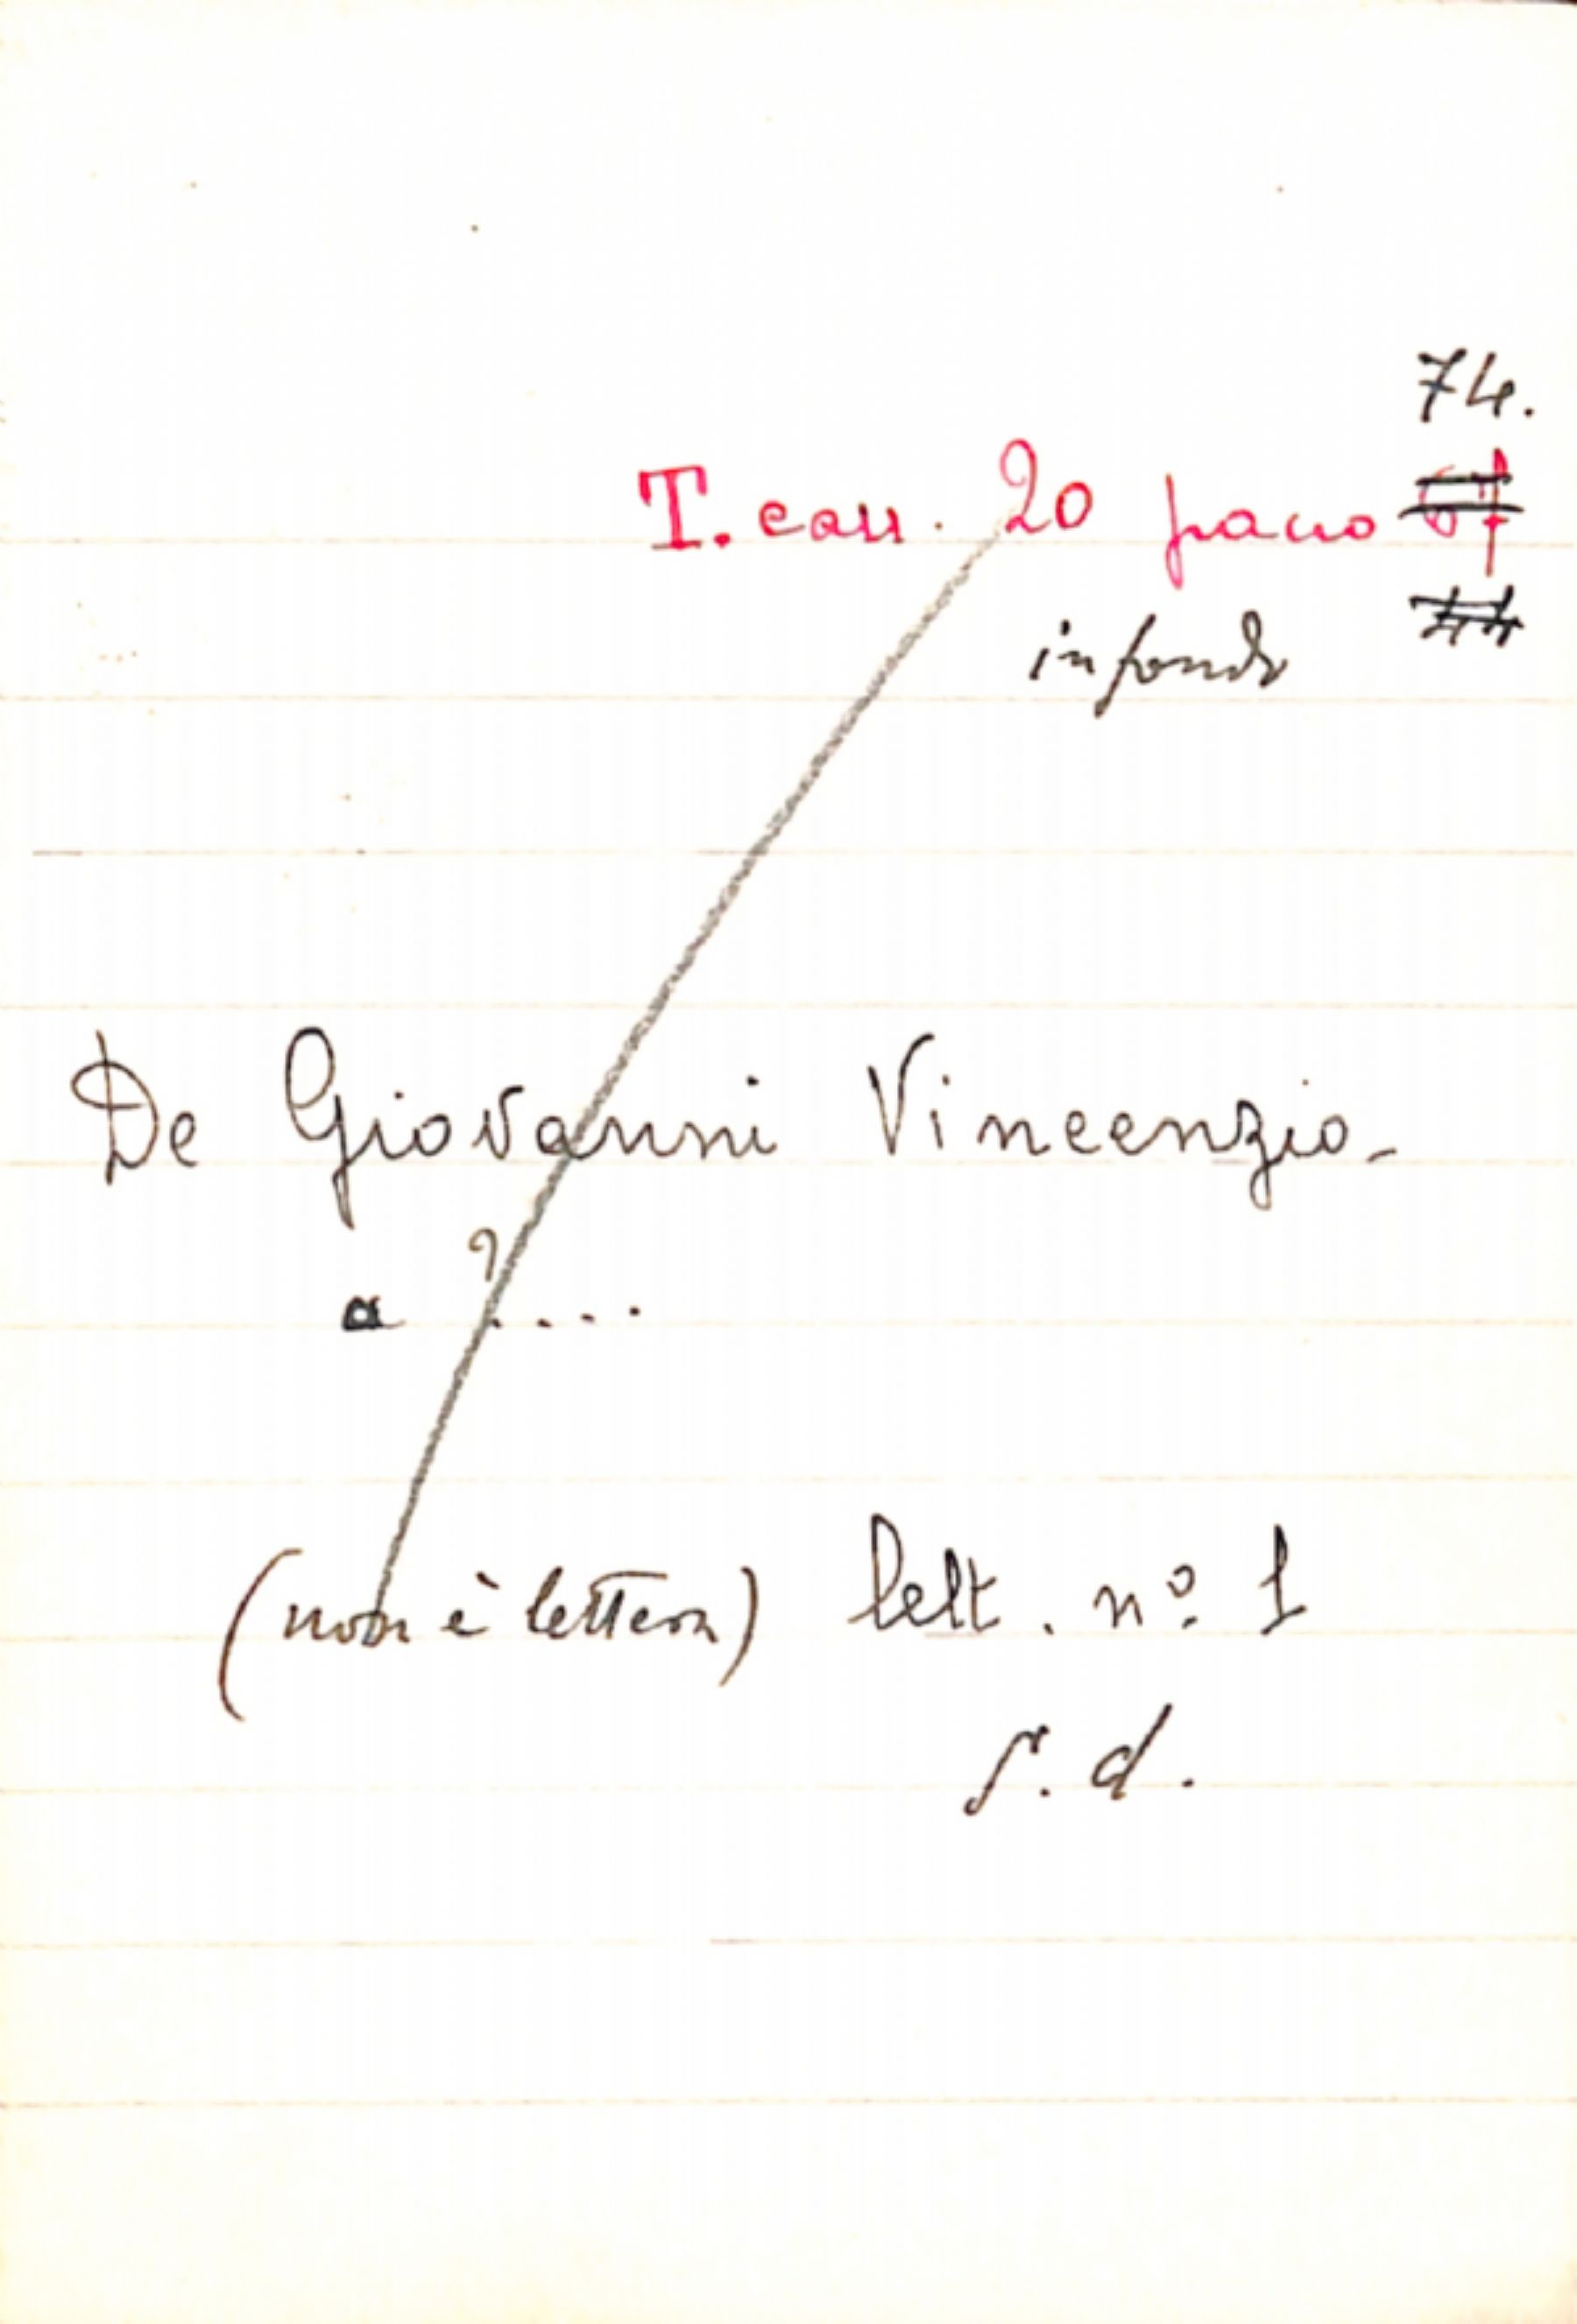 74.
T. cass. 20 pacco
in fondo
De Giovanni Vincenzio -
a ? ....
(non è lettera) lett. nº. 1
s. d.